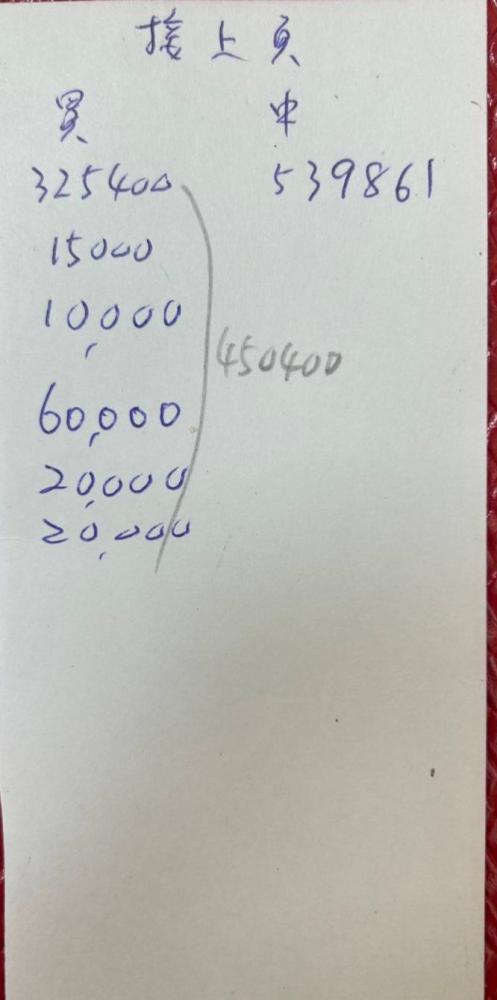 接上頁
買 中
325400 539861
15000
10,000
450400
60,000
20,000
20,000